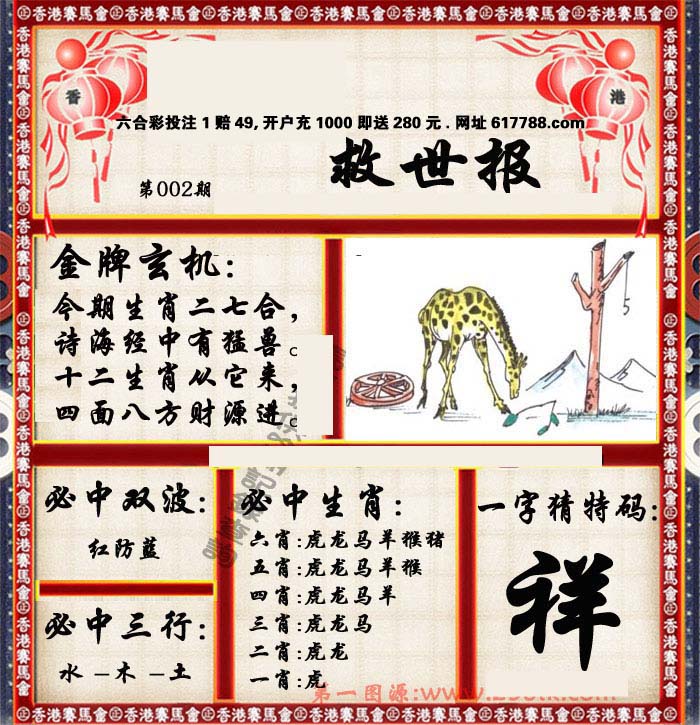 香 港
六合彩投注 1 赔 49, 开户充 1000 即送 280 元 . 网址 617788.com
救世报
第002期
金牌玄机:
今期生肖二七合，
诗海经中有猛兽。
十二生肖从它来，
四面八方财源进。
5
必中双波:
红防蓝
必中三行:
水－木－土
必中生肖:
六肖:虎龙马羊猴猪
五肖:虎龙马羊猴
四肖:虎龙马羊
三肖:虎龙马
二肖:虎龙
一肖:虎
一字猜特码:
祥
第一图源:www.
香港赛馬會